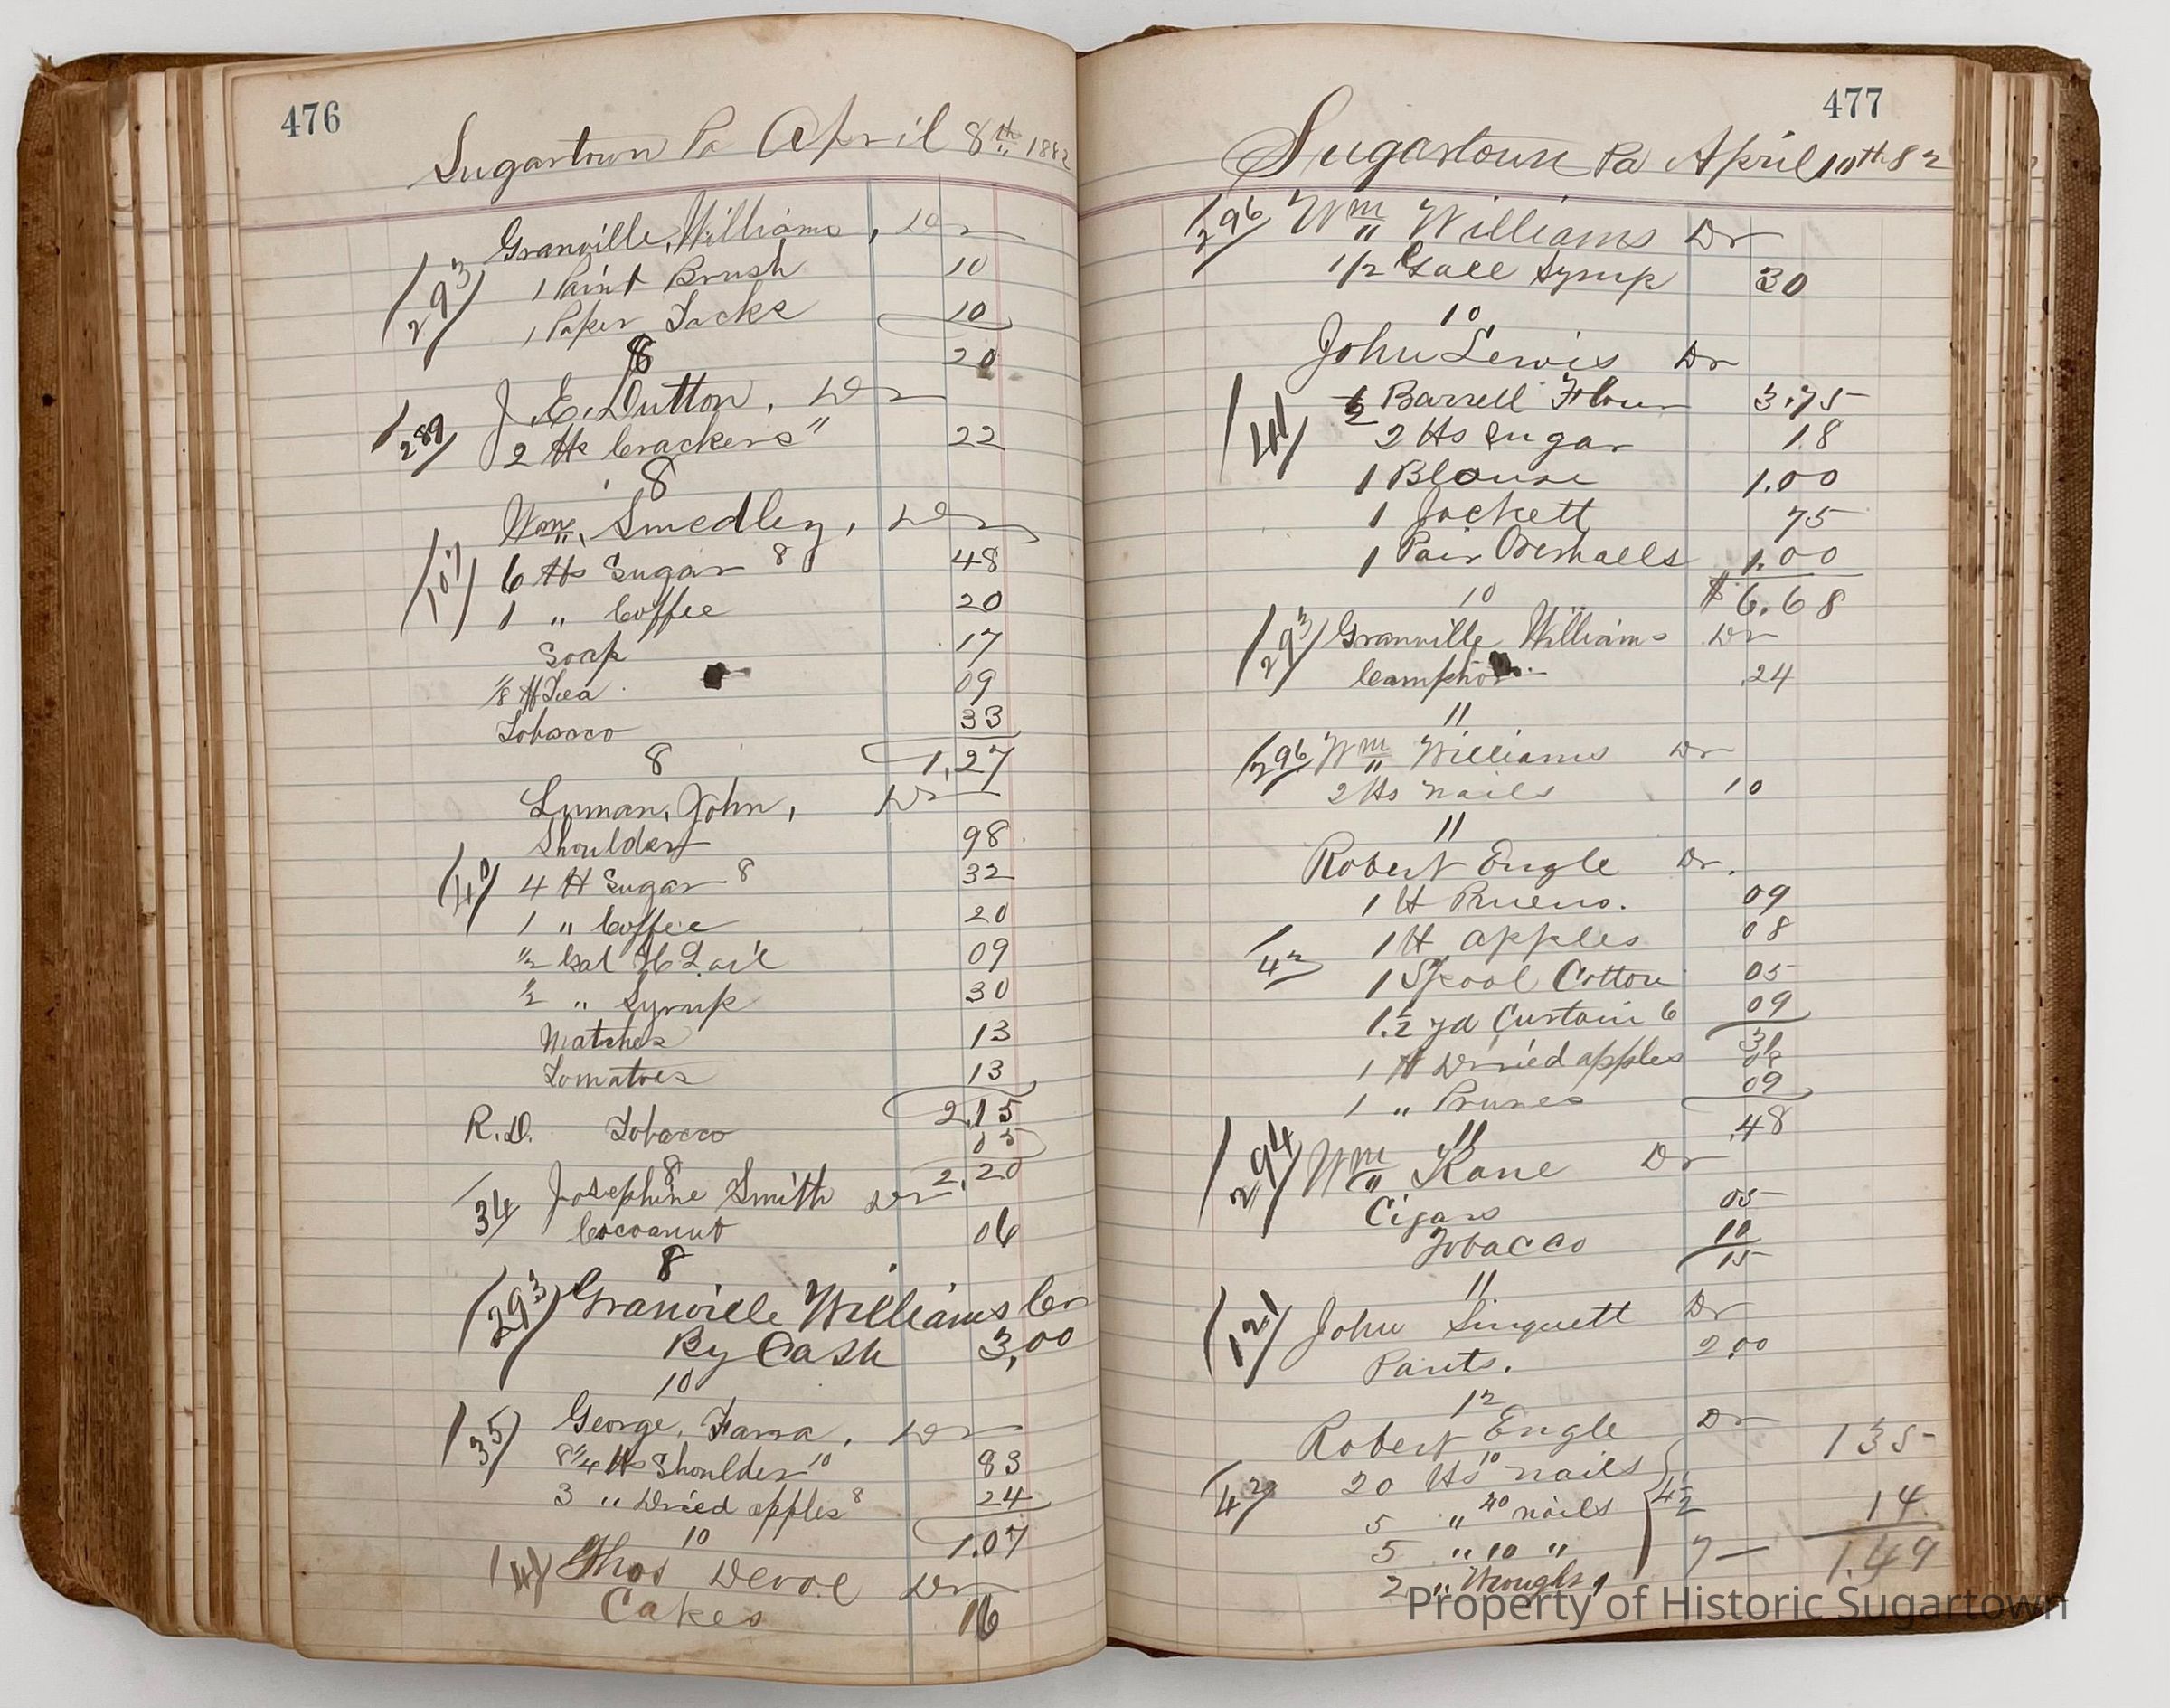 476
Sugartown Pa April 8th 1882
Granville, Williams, Dr
293
1 Paint Brush 10
1 Paper Tacks 10
20
8
J. E. Dutton, Dr
289
2 lbs Crackers " 22
8
Wm, Smedley, Dr
6 lbs Sugar 8 48
1 " Coffee 20
Soap 17
1/8 lb Tea 09
Tobacco 33
8 1,27
Luman, John, Dr
Shoulder 98
4 lb Sugar 8 32
1 " Coffee 20
1/2 Gal H L oil 09
1/2 " Syrup 30
Matches 13
Tomatoes 13
2,15
R.D. Tobacco 05
8 2,20
34 Josephine Smith Dr
Cocoanut 06
8
293 Granville Williams Cr
By Cash 3,00
10
35 George, Farra, Dr
8 1/4 lbs Shoulder 10 83
3 " Dried apples 8 24
10 1.07
Thos Devoe Dr
Cakes 16
477
Sugartown Pa April 10th 82
296 Wm Williams Dr
1/2 Gall Syrup 30
10
John Lewis Dr
41
1/2 Barrell Flour 3.75
2 lbs Sugar 18
1 Blouse 1.00
1 Jackett 75
1 Pair Overhalls 1.00
10 $6.68
293 Granville Williams Dr
Camphor .24
11
296 Wm Williams Dr
2 lbs nails 10
11
Robert Engle Dr.
1 lb Prueno. 09
1 lb apples 08
42
1 Spool Cotton 05
1.1/2 yd Curtain 6 09
31
1 lb Dried apples 08
1 " Prunes 09
11 .48
294 Wm Kane Dr
Cigars 05
Tobacco 10
15
11
John Singuett Dr
Pants. 2,00
12
Robert Engle Dr
42
20 lbs 10 nails 4 1/2 135
5 " 40 nails
5 " 10 " 7 — 14
2 " Wrought 1.49
Property of Historic Sugartown